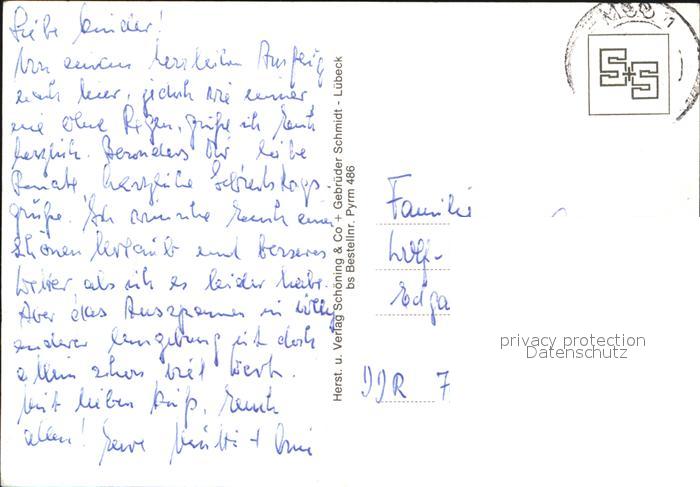 Liebe Kinder!
Von einem herrlichen Ausflug
nach hier, jedoch wie immer
nie ohne Regen, grüße ich Euch
herzlich. Besonders Dir liebe
Renate herzliche Geburtstags-
grüße. Ich wünsche Euch einen
schönen Urlaub und besseres
Wetter als ich es leider habe.
Aber das Ausspannen in völlig
anderer Umgebung ist doch
allein schon viel wert.
Mit lieben Gruß, Euch
allen! Eure Mutti + Omi
Herst. u. Verlag Schöning & Co + Gebrüder Schmidt - Lübeck
bs Bestellnr. Pyrm 486
S+S
Familie
Edga
DDR 7
privacy protection
Datenschutz